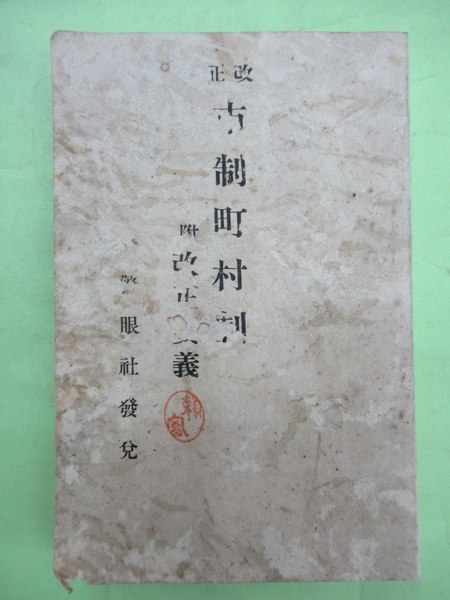 改正
市制町村制
附改正要義
警眼社發兌